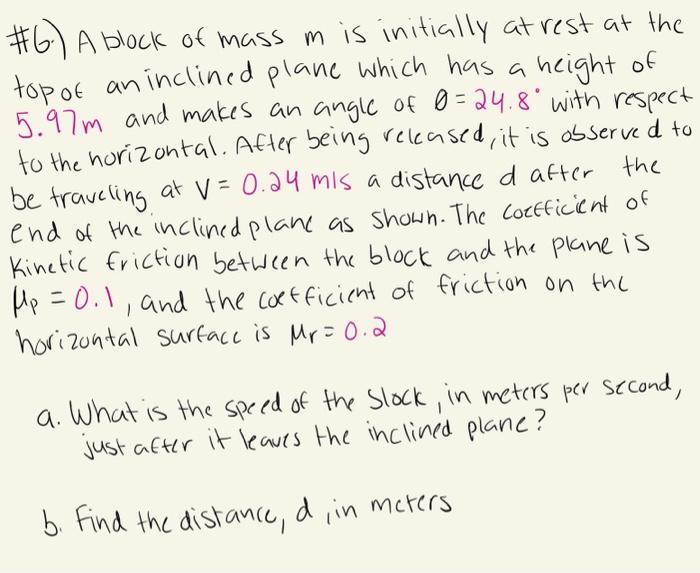 #6.) A block of mass m is initially at rest at the
top of an inclined plane which has a height of
5.97m and makes an angle of θ = 24.8° with respect
to the horizontal. After being released, it is observed to
be traveling at V = 0.24 m/s a distance d after the
end of the inclined plane as shown. The coefficient of
Kinetic friction between the block and the plane is
μp = 0.1, and the coefficient of friction on the
horizontal surface is μr = 0.2
a. What is the speed of the Slock, in meters per second,
just after it leaves the inclined plane?
b. Find the distance, d, in meters